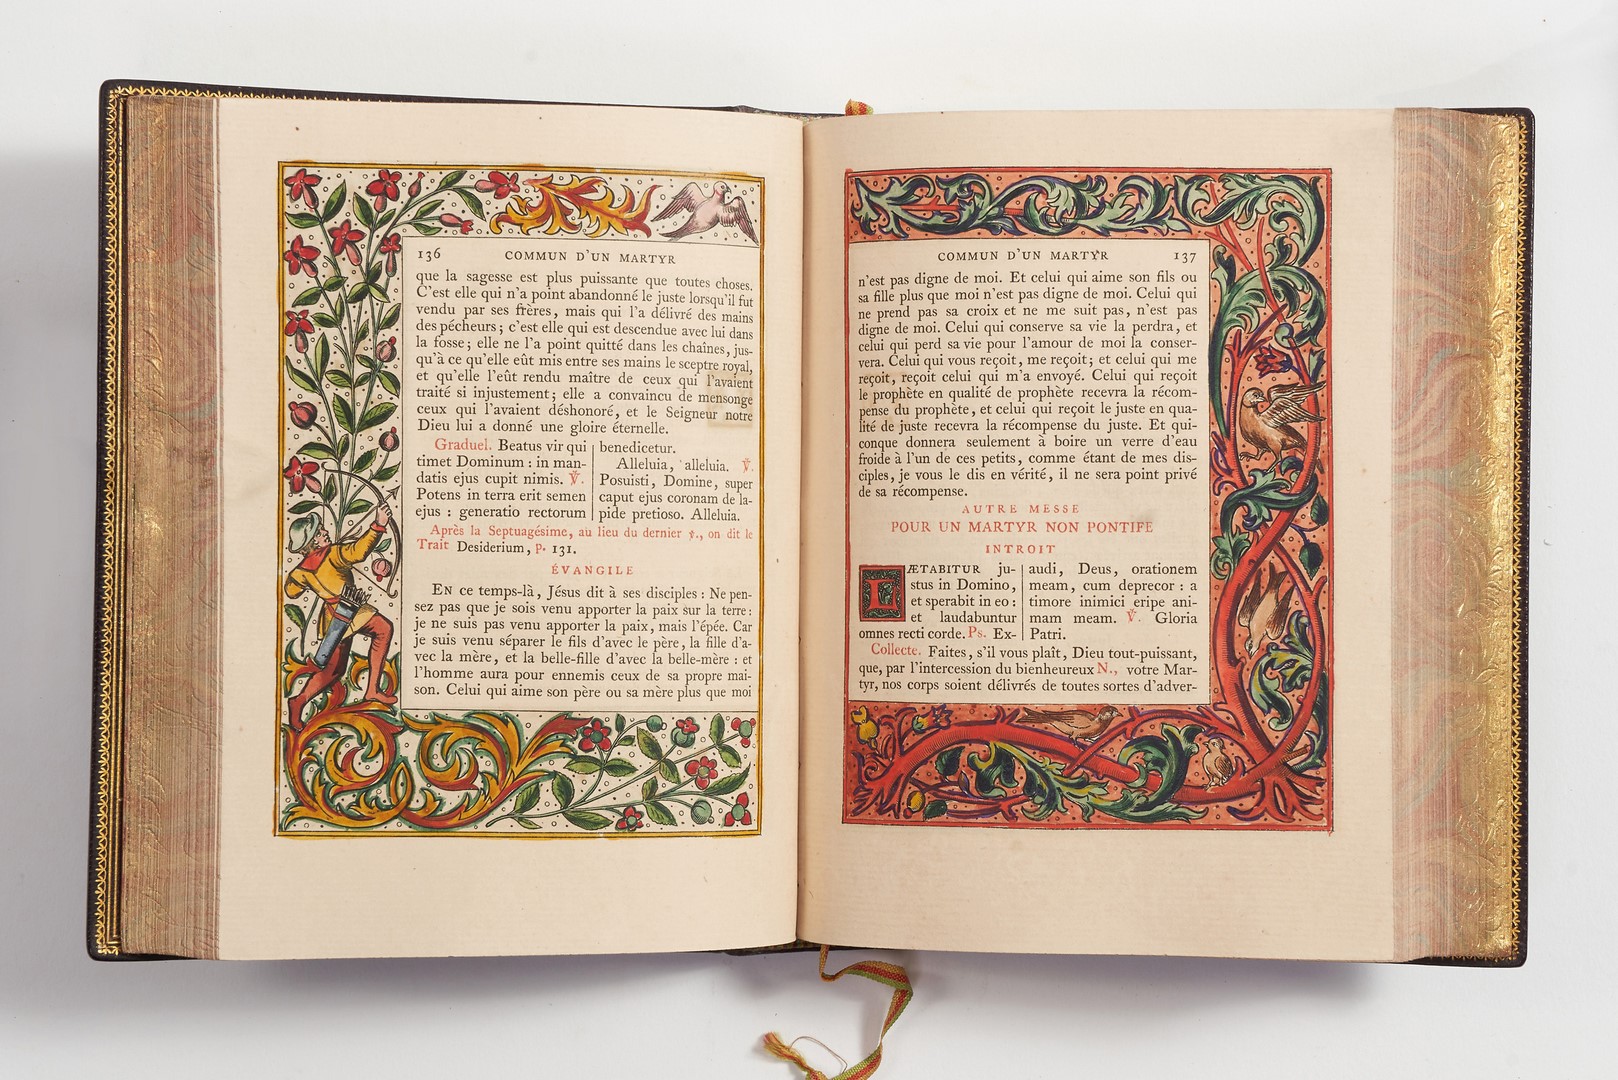 136 COMMUN D'UN MARTYR
que la sagesse est plus puissante que toutes choses.
C'est elle qui n'a point abandonné le juste lorsqu'il fut
vendu par ses frères, mais qui l'a délivré des mains
des pécheurs ; c'est elle qui est descendue avec lui dans
la fosse ; elle ne l'a point quitté dans les chaînes, jus-
qu'à ce qu'elle eût mis entre ses mains le sceptre royal,
et qu'elle l'eût rendu maître de ceux qui l'avaient
traité si injustement ; elle a convaincu de mensonge
ceux qui l'avaient déshonoré, et le Seigneur notre
Dieu lui a donné une gloire éternelle.
Graduel. Beatus vir qui
timet Dominum : in man-
datis ejus cupit nimis. ℣.
Potens in terra erit semen
ejus : generatio rectorum
benedicetur.
Alleluia, alleluia. ℣.
Posuisti, Domine, super
caput ejus coronam de la-
pide pretioso. Alleluia.
Après la Septuagésime, au lieu du dernier ℣., on dit le
Trait Desiderium, p. 131.
ÉVANGILE
EN ce temps-là, Jésus dit à ses disciples : Ne pen-
sez pas que je sois venu apporter la paix sur la terre :
je ne suis pas venu apporter la paix, mais l'épée. Car
je suis venu séparer le fils d'avec le père, la fille d'a-
vec la mère, et la belle-fille d'avec la belle-mère : et
l'homme aura pour ennemis ceux de sa propre mai-
son. Celui qui aime son père ou sa mère plus que moi
COMMUN D'UN MARTYR 137
n'est pas digne de moi. Et celui qui aime son fils ou
sa fille plus que moi n'est pas digne de moi. Celui qui
ne prend pas sa croix et ne me suit pas, n'est pas
digne de moi. Celui qui conserve sa vie la perdra, et
celui qui perd sa vie pour l'amour de moi la conser-
vera. Celui qui vous reçoit, me reçoit ; et celui qui me
reçoit, reçoit celui qui m'a envoyé. Celui qui reçoit
le prophète en qualité de prophète recevra la récom-
pense du prophète, et celui qui reçoit le juste en qua-
lité de juste recevra la récompense du juste. Et qui-
conque donnera seulement à boire un verre d'eau
froide à l'un de ces petits, comme étant de mes dis-
ciples, je vous le dis en vérité, il ne sera point privé
de sa récompense.
AUTRE MESSE
POUR UN MARTYR NON PONTIFE
INTROIT
LÆTABITUR ju-
stus in Domino,
et sperabit in eo :
et laudabuntur
omnes recti corde. Ps. Ex-
audi, Deus, orationem
meam, cum deprecor : a
timore inimici eripe ani-
mam meam. ℣. Gloria
Patri.
Collecte. Faites, s'il vous plaît, Dieu tout-puissant,
que, par l'intercession du bienheureux N., votre Mar-
tyr, nos corps soient délivrés de toutes sortes d'adver-